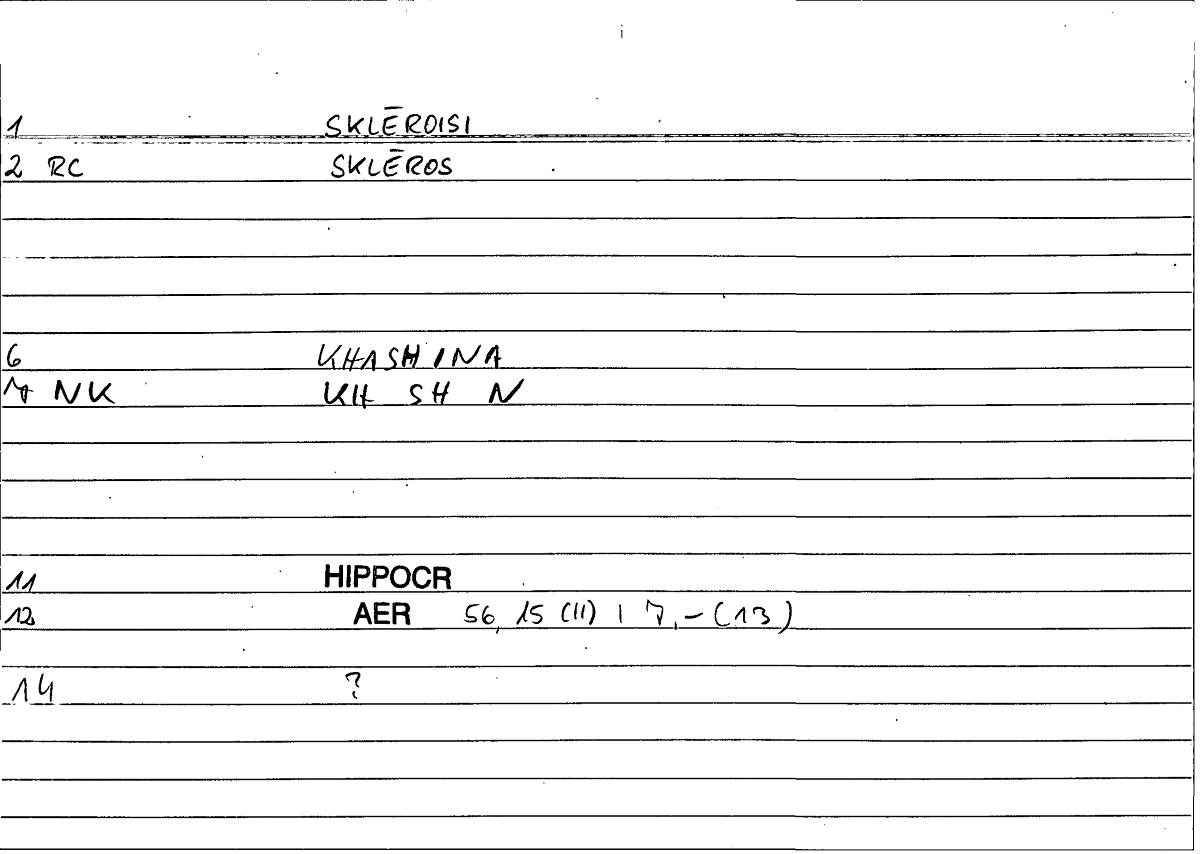 1 SKLĒROISI
2 RC SKLĒROS
6 KHASHINA
7 NK KH SH N
11 HIPPOCR
12 AER 56, 15 (11) | 7, - (13)
14 ?